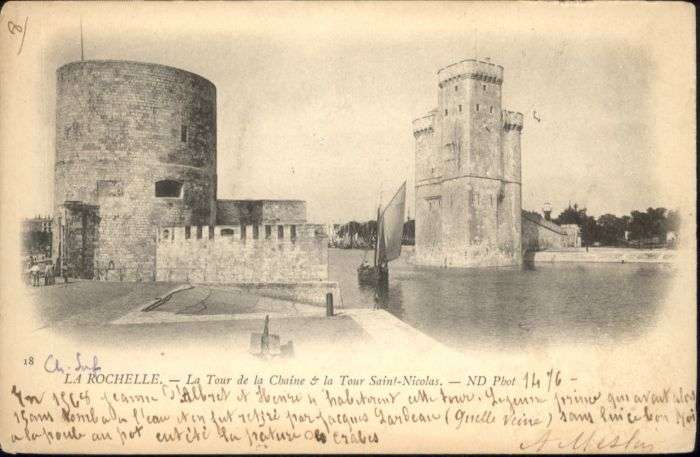 18 Ch. Inf
LA ROCHELLE. — La Tour de la Chaine & la Tour Saint-Nicolas. — ND Phot 1476 -
En 1568 Jeanne d'Albret et Henri 4 habitèrent cette tour. Le jeune prince qui avait alors
15 ans tomba à l'eau et en fut retiré par Jacques Lardeau (Quelle veine) sans lui ce bon Roi
a la poule au pot eut été la pature des crabes